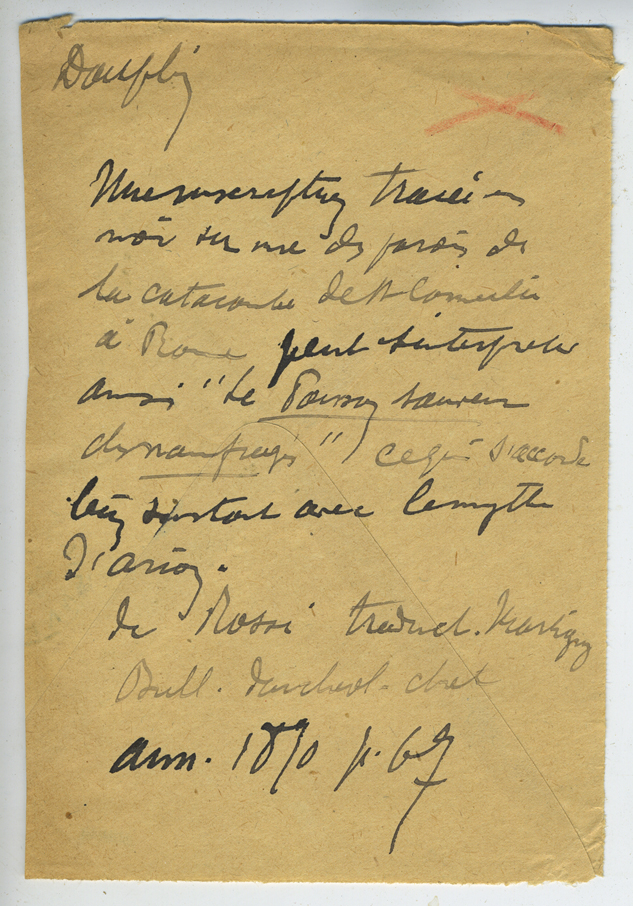 Dauphin
Une inscription tracée en
noir sur une des parois de
la catacombe de St Corneille
à Rome peut s'interpreter
ainsi "Le Poisson sauveur
des naufragés" ce qui s'accorde
bien surtout avec le mythe
d'arion.
de Rossi traduct. Martigny
Bull. d'archeol. chret
ann. 1870 p. 67